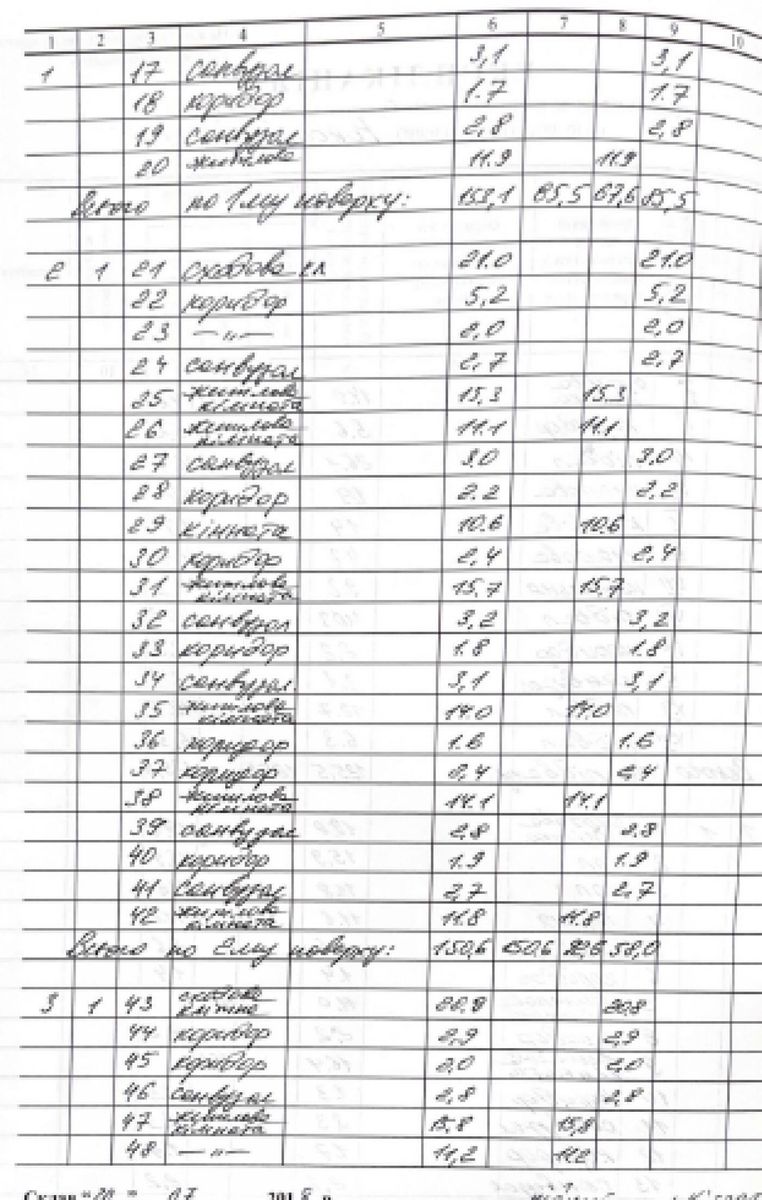 1 2 3 4 5 6 7 8 9 10
1 17 санвузол 3,1 3,1
18 коридор 1.7 1.7
19 санвузол 2,8 2,8
20 житлова 11.9 11.9
Всього по 1му поверху: 153,1 85,5 67,6 85,5
2 1 21 сходова кл 21.0 21.0
22 коридор 5,2 5,2
23 —„— 2,0 2,0
24 санвузол 2,7 2,7
25 житлова кімната 15,3 15.3
26 житлова кімната 11.1 11,1
27 санвузол 3,0 3,0
28 коридор 2,2 2,2
29 кімната 10.6 10.6
30 коридор 2,4 2,4
31 житлова кімната 15,7 15,7
32 санвузол 3,2 3,2
33 коридор 1.8 1.8
34 санвузол 3,1 3,1
35 житлова кімната 14.0 14.0
36 коридор 1.6 1.6
37 коридор 2,4 2,4
38 житлова кімната 14.1 14,1
39 санвузол 2,8 2,8
40 коридор 1.9 1.9
41 санвузол 2,7 2,7
42 житлова кімната 11.8 11.8
Всього по 2му поверху: 150,6 150,6 92,6 58,0
3 1 43 сходова клітина 20.8 20.8
44 коридор 2,9 2,9
45 коридор 2,0 2,0
46 санвузол 2,8 2,8
47 житлова кімната 15,8 15,8
48 —„— 11,2 11.2